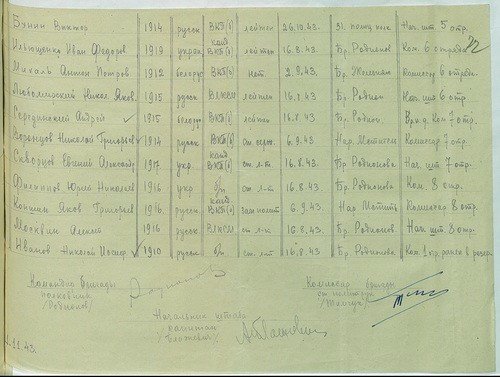 Бунин Виктор 1914 русск ВКП(б) лейтен 26.10.43. Нач. шт. 5 отр.
Ильющенко Иван Федоров 1919 украи канд ВКП(б) лейтен 16.8.43. Бр. Родионов Ком. 6 отрада 82
Михаль Антон Петров 1912 белорус ВКП(б) 2.9.43. Бр. Железняк Комиссар 6 отрад.
Никол. Яков. 1915 русск ВЛКСМ лейтен 16.8.43 Бр. Родион Нач. шт 6 отр.
Середзинский Андрей 1915 белорус ВКП(б) лейтен 16.8.43 Бр. Родион. Ком 7 отр.
Воронцов Николай Григорьев 1914 русск ВКП(б) ст. серж. 6.9.43. Нар. Мстител Комиссар 7 отр.
Скворцов Евгений Александр 1917 укр. канд ВКП(б) ст. л-т 16.8.43. Бр. Родионова Нач. шт 7 отр.
Филиппов Юрий Николаев 1916 укр б/п ст. л-т 16.8.43. Бр. Родионова Ком. 8 отр.
Конкин Яков Григорьев 1916. русск канд ВКП(б) зам полит 6.9.43. Нар. Мстит. Комиссар 8 отр.
Москвин Алексей 1916 русск ВЛКСМ ст. л-т 16.8.43 Бр. Родионова Нач. шт. 8 отр.
Иванов Николай Иосиф. 1910 русск б/п ст. л-т 16.8.43 Бр. Родионова Ком. 1 отр. ранен в
Командир бригады
полковник
/Родионов/
Комиссар бригады
ст. политрук
/Тимчук/
Начальник штаба
капитан
11.43.